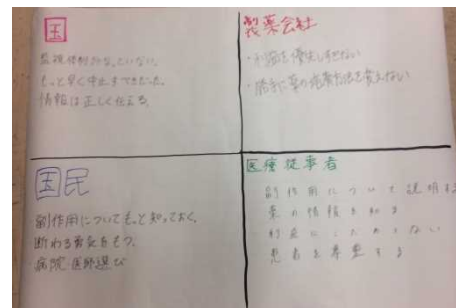 国
監視体制がなっていない。
もっと早く中止すべきだった。
情報は正しく伝える
製薬会社
・利益を優先しすぎない
・勝手に薬の 方法を変えない
国民
副作用についてもっと知っておく。
断わる勇気をもつ。
病院・医師選び
医療従事者
副作用について説明する
薬の情報を知る
利益にとらわれない
患者を尊重する